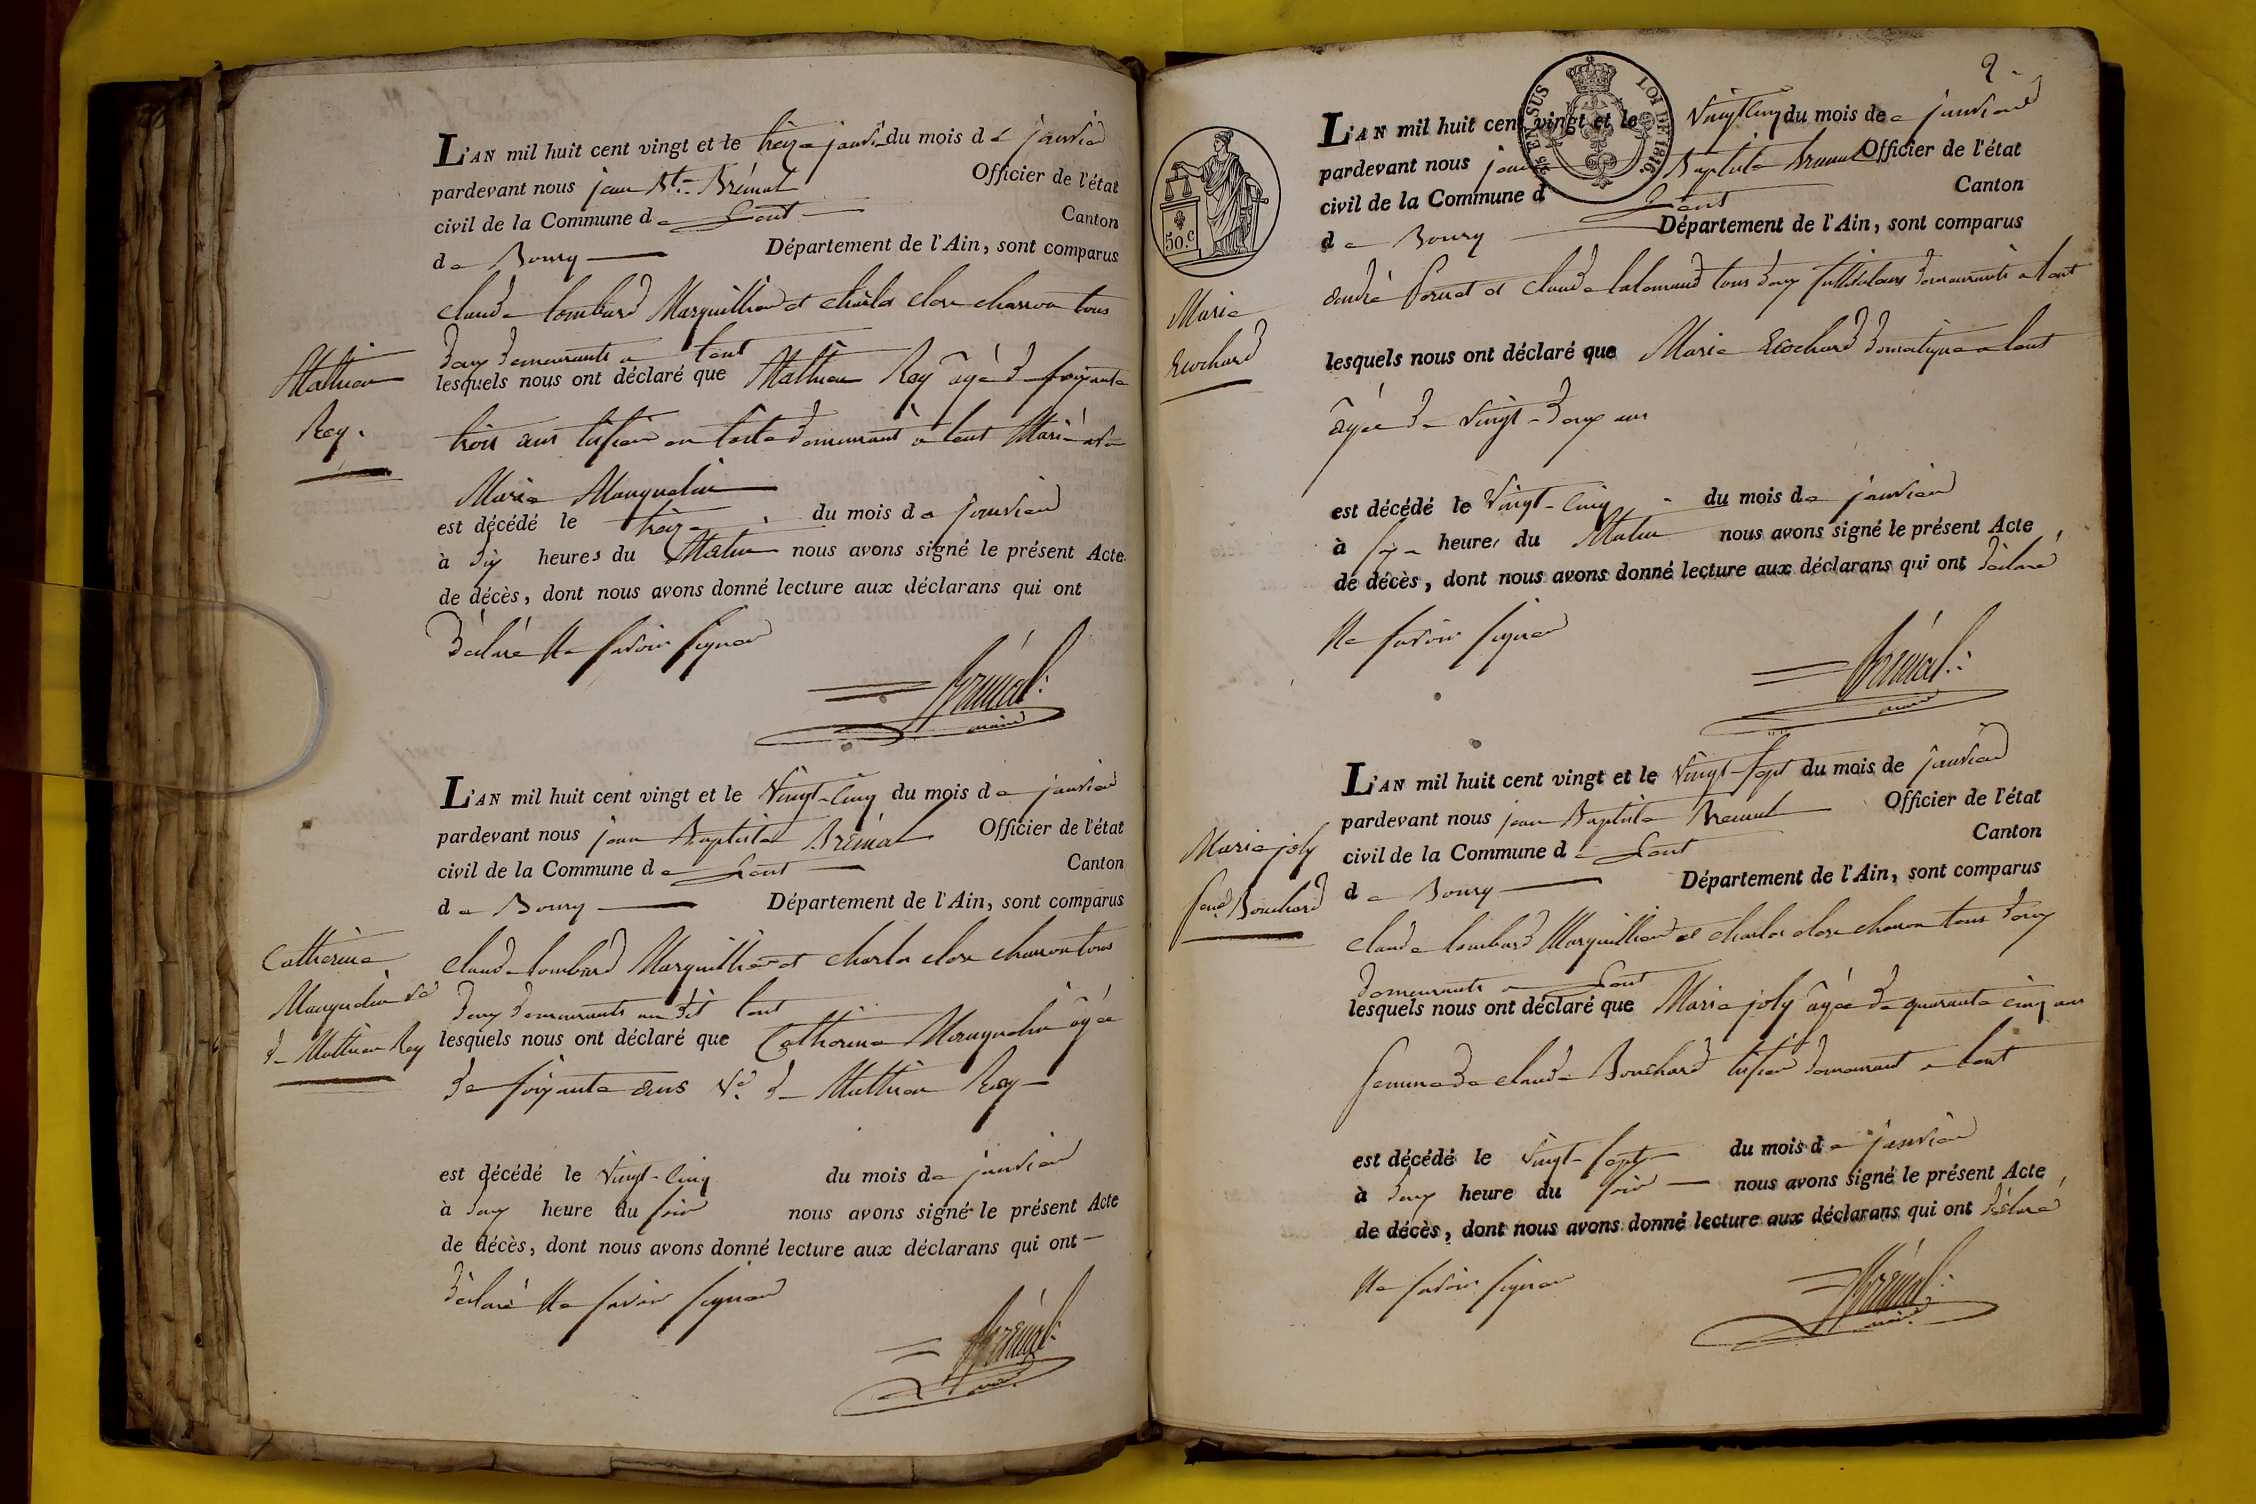 L'AN mil huit cent vingt et le treize janvier du mois de janvier
pardevant nous jean Bte. Brémal Officier de l'état
civil de la Commune de Lent Canton
de Bourg Département de l'Ain, sont comparus
claude lombard Marguillier et charles clere charron tous
deux demeurants a lent
Mathieu
Rey.
lesquels nous ont déclaré que Mathieu Rey âgé de soixante
trois ans tisseur en toile demeurant a lent Marié avec
Marie
est décédé le treize du mois de janvier
à dix heures du Matin nous avons signé le présent Acte
de décès, dont nous avons donné lecture aux déclarans qui ont
déclaré Ne savoir signer
Brémal.
maire
L'AN mil huit cent vingt et le Vingt-Cinq du mois de janvier
pardevant nous jean Baptiste Brémal Officier de l'état
civil de la Commune de Lent Canton
de Bourg Département de l'Ain, sont comparus
Catherine
de Mathieu Rey
claude lombard Marguillier et charles clere charron tous
deux demeurants au dit lent
lesquels nous ont déclaré que Catherine âgée
de soixante ans Ve. de Mathieu Rey
est décédé le Vingt-Cinq du mois de janvier
à deux heure du soir nous avons signé le présent Acte
de décès, dont nous avons donné lecture aux déclarans qui ont
déclaré Ne savoir signer
Brémal.
maire
2
EN SUS
LOI DE 1816
50.c
L'AN mil huit cent vingt et le Vingt Cinq du mois de janvier
pardevant nous jean Baptiste Brémal Officier de l'état
civil de la Commune d Lent Canton
de Bourg Département de l'Ain, sont comparus
Marie
Ecochard
andré et claude tous deux demeurants a lent
lesquels nous ont déclaré que Marie Ecochard domestique a lent
âgée de Vingt-deux ans
est décédé le Vingt-Cinq du mois de janvier
à six heures du Matin nous avons signé le présent Acte
de décès, dont nous avons donné lecture aux déclarans qui ont déclaré
Ne savoir signer
Brémal.
maire
L'AN mil huit cent vingt et le Vingt-sept du mois de janvier
pardevant nous jean Baptiste Brémal Officier de l'état
civil de la Commune de Lent Canton
de Bourg Département de l'Ain, sont comparus
Marie joly
feme. Bouchard
claude lombard Marguillier et charles clere charron tous deux
demeurants a Lent
lesquels nous ont déclaré que Marie joly âgée de quarante cinq ans
femme de claude Bouchard tisseur demeurant a lent
est décédé le Vingt-sept du mois de janvier
à deux heure du soir nous avons signé le présent Acte
de décès, dont nous avons donné lecture aux déclarans qui ont déclaré
Ne savoir signer
Brémal.
maire